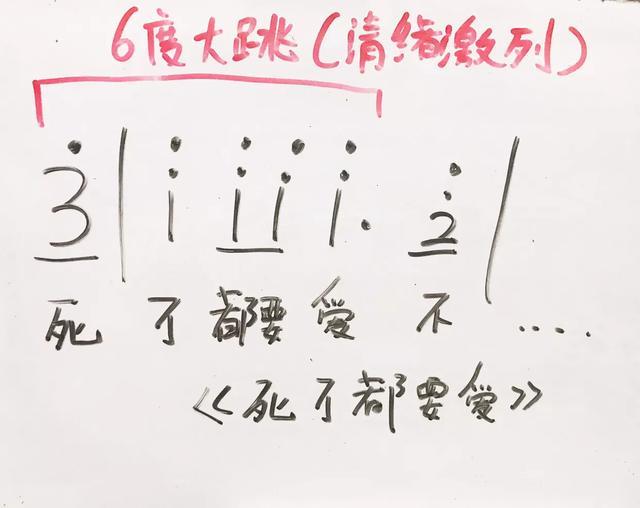 6度大跳(清绪激列)
3̇ | 1̈ 1̈ 1̈ 1̈ . 2̈ |
死 了 都要 爱 不 ....
《死了都要爱》